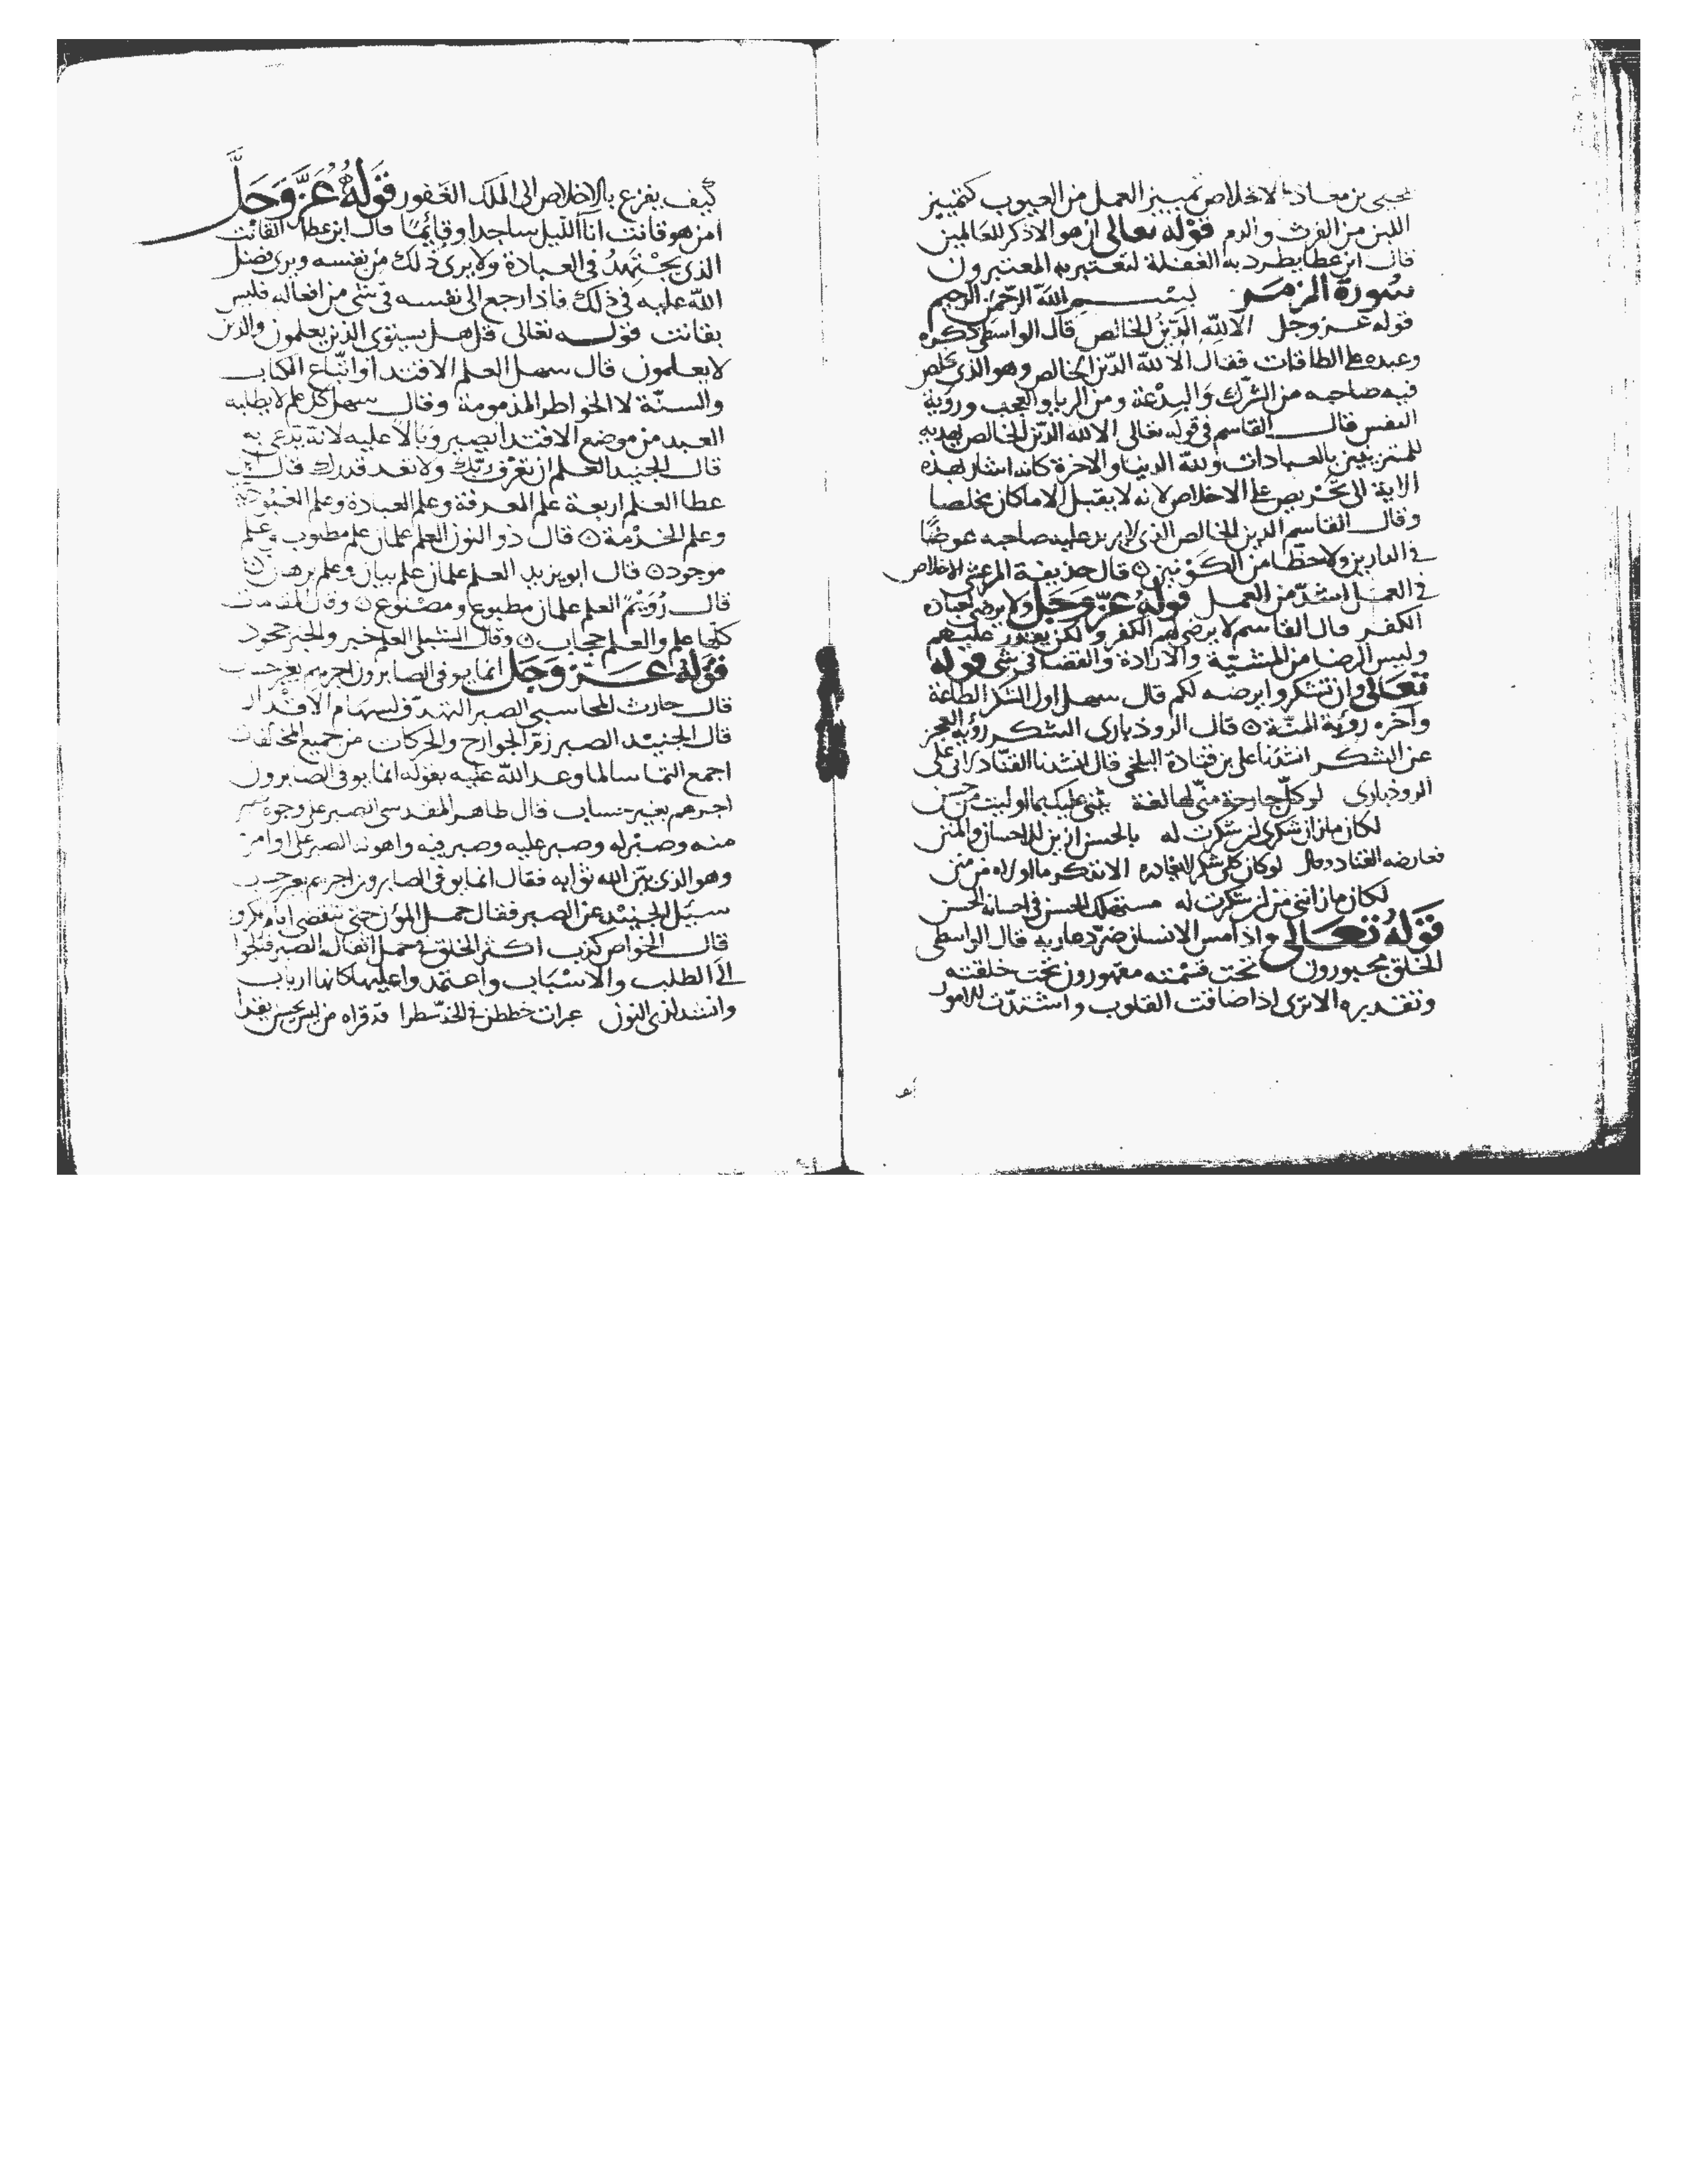 يحيى بن معاذ الاخلاص تمييز العمل من العيوب كتمييز
اللبن من الفرث والدم قوله تعالى ان هو الا ذكر للعالمين
قال ابن عطا يطرد به الغفلة لتعتبر به المعتبرون
سورة الزمر بسم الله الرحمن الرحيم
قوله عز وجل الا لله الدين الخالص قال الواسطى ذكره
وعبده على الطاقات فقال الا لله الدين الخالص وهو الذى يخلص
فيه صاحبه من الشرك والبدعة ومن الريا والعجب ورؤية
النفس قال القاسم فى قوله تعالى الا لله الدين الخالص تهديد
للمتزينين بالعبادات ولله الدنيا والاخرة كانه اشار بهذه
الاية الى تحريص على الاخلاص لانه لا يقبل الا ما كان مخلصا
وقال القاسم الدين الخالص الذى لا يريد عليه صاحبه عوضا
فى الدارين ولا حظا من الكونين ن قال حذيفة المرعشى الاخلاص
فى العمل اشد من العمل قوله عز وجل ولا يرضى لعباده
الكفر قال القاسم لا يرضى لهم الكفر ولكن يقدر عليهم
وليس الرضا من المشية والارادة والقضا فى شى قوله
تعالى وان تشكروا يرضه لكم قال سهل اول الشكر الطاعة
واخره رؤية المنة ن قال الروذبارى الشكر رؤية العجز
عن الشكر انشدنا على بن قتادة البلخى قال انشدنا القناد لابى على
الروذبارى لو كل جارحة منى لها لغة تثنى عليك بما اوليت من حسن
لكان ما زان شكرى اذ شكرت له بالحسن ازين للاحسان والمنن
فعارضه القناد وقال لو كان كل شكر الا تذكر ما اولاه من منن
لكان ما زاننى من اذ شكرت له مستهلك الحسن فى احسانه الحسن
قوله تعالى واذا مس الانسان ضر دعا ربه قال الواسطى
الخلق مجبورون تحت قسمته مقهورون تحت خلقته
وتقديره الا ترى اذا ضاقت القلوب واشتدت الامور
كيف يفزع بالاخلاص الى الملك الغفور قوله عز وجل
امن هو قانت انآ الليل ساجدا وقائما قال ابن عطا القانت
الذى يجتهد فى العبادة ولا يرى ذلك من نفسه ويرى فضل
الله عليه فى ذلك فاذا رجع الى نفسه فى شى من افعاله فليس
بقانت قوله تعالى قل هل يستوى الذين يعلمون والذين
لا يعلمون قال سهل العلم الاقتدا واتباع الكتاب
والسنة لا الخواطر المذمومة وقال سهل كل علم لا يطلبه
العبد من موضع الاقتدا يصير وبالا عليه لانه يدعى به
قال الجنيد العلم ان تعرف ربك ولا تعد قدرك قال ابن
عطا العلم اربعة علم المعرفة وعلم العبادة وعلم العبودية
وعلم الخدمة ن قال ذو النون العلم علمان علم مطلوب وعلم
موجود ن قال ابو يزيد العلم علمان علم بيان وعلم برهان ن
قال رويم العلم علمان مطبوع ومصنوع ن وقال المقامات
كلها علم والعلم حجاب ن وقال الشبلى العلم خبر والخبر جحود
قوله عز وجل انما يوفى الصابرون اجرهم بغير حساب
قال حارث المحاسبى الصبر التهدف لسهام الاقدار
قال الجنيد الصبر زم الجوارح والحركات من جميع المخالفات
اجمع التما سالما وعد الله عليه بقوله انما يوفى الصابرون
اجرهم بغير حساب قال طاهر المقدسى الصبر على وجوه صبر
منه وصبر له وصبر عليه وصبر فيه واهونه الصبر على اوامر
وهو الذى بين الله ثوابه فقال انما يوفى الصابرون اجرهم بغير حساب
سئل الجنيد عن الصبر فقال حمل المؤن حتى تنقضى ايام المكروه
قال الخواص كذب اكثر الخلق فى حمل اثقال الصبر فلجوا
الى الطلب والاسباب واعتمدوا عليها كانها ارباب
وانشد لذى النون عبرات خططن فى الخد سطرا قد قراه من ليس يحسن يقرا